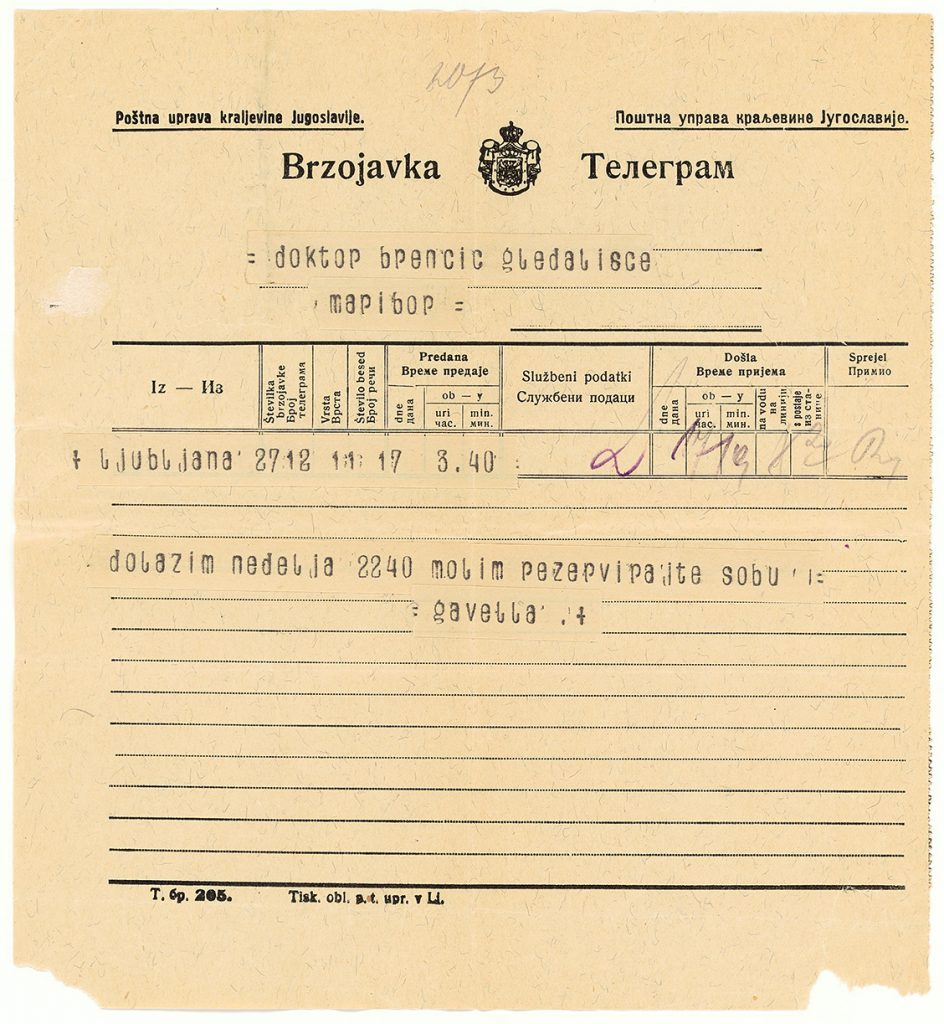 Poštna uprava kraljevine Jugoslavije. Поштна управа краљевине Југославије.
Brzojavka Телеграм
= doktop bpencic gledalisce
mapibop =
Iz — Из
Številka brzojavke Број телеграма
Vrsta Врста
Število besed Број речи
Predana Време предаје
dne дана
ob — у
uri час.
min. мин.
Službeni podatki Службени подаци
Došla Време пријема
dne дана
ob — у
uri час.
min. мин.
na vodu на линији
s postaje из станице
Sprejel Примио
+ ljubljana 2712 11 17 3.40 =
dolazim nedelja 2240 molim pezepvipajte sobu =
= gavella . +
Т. бр. 265. Tisk. obl. p. t. upr. v Lj.